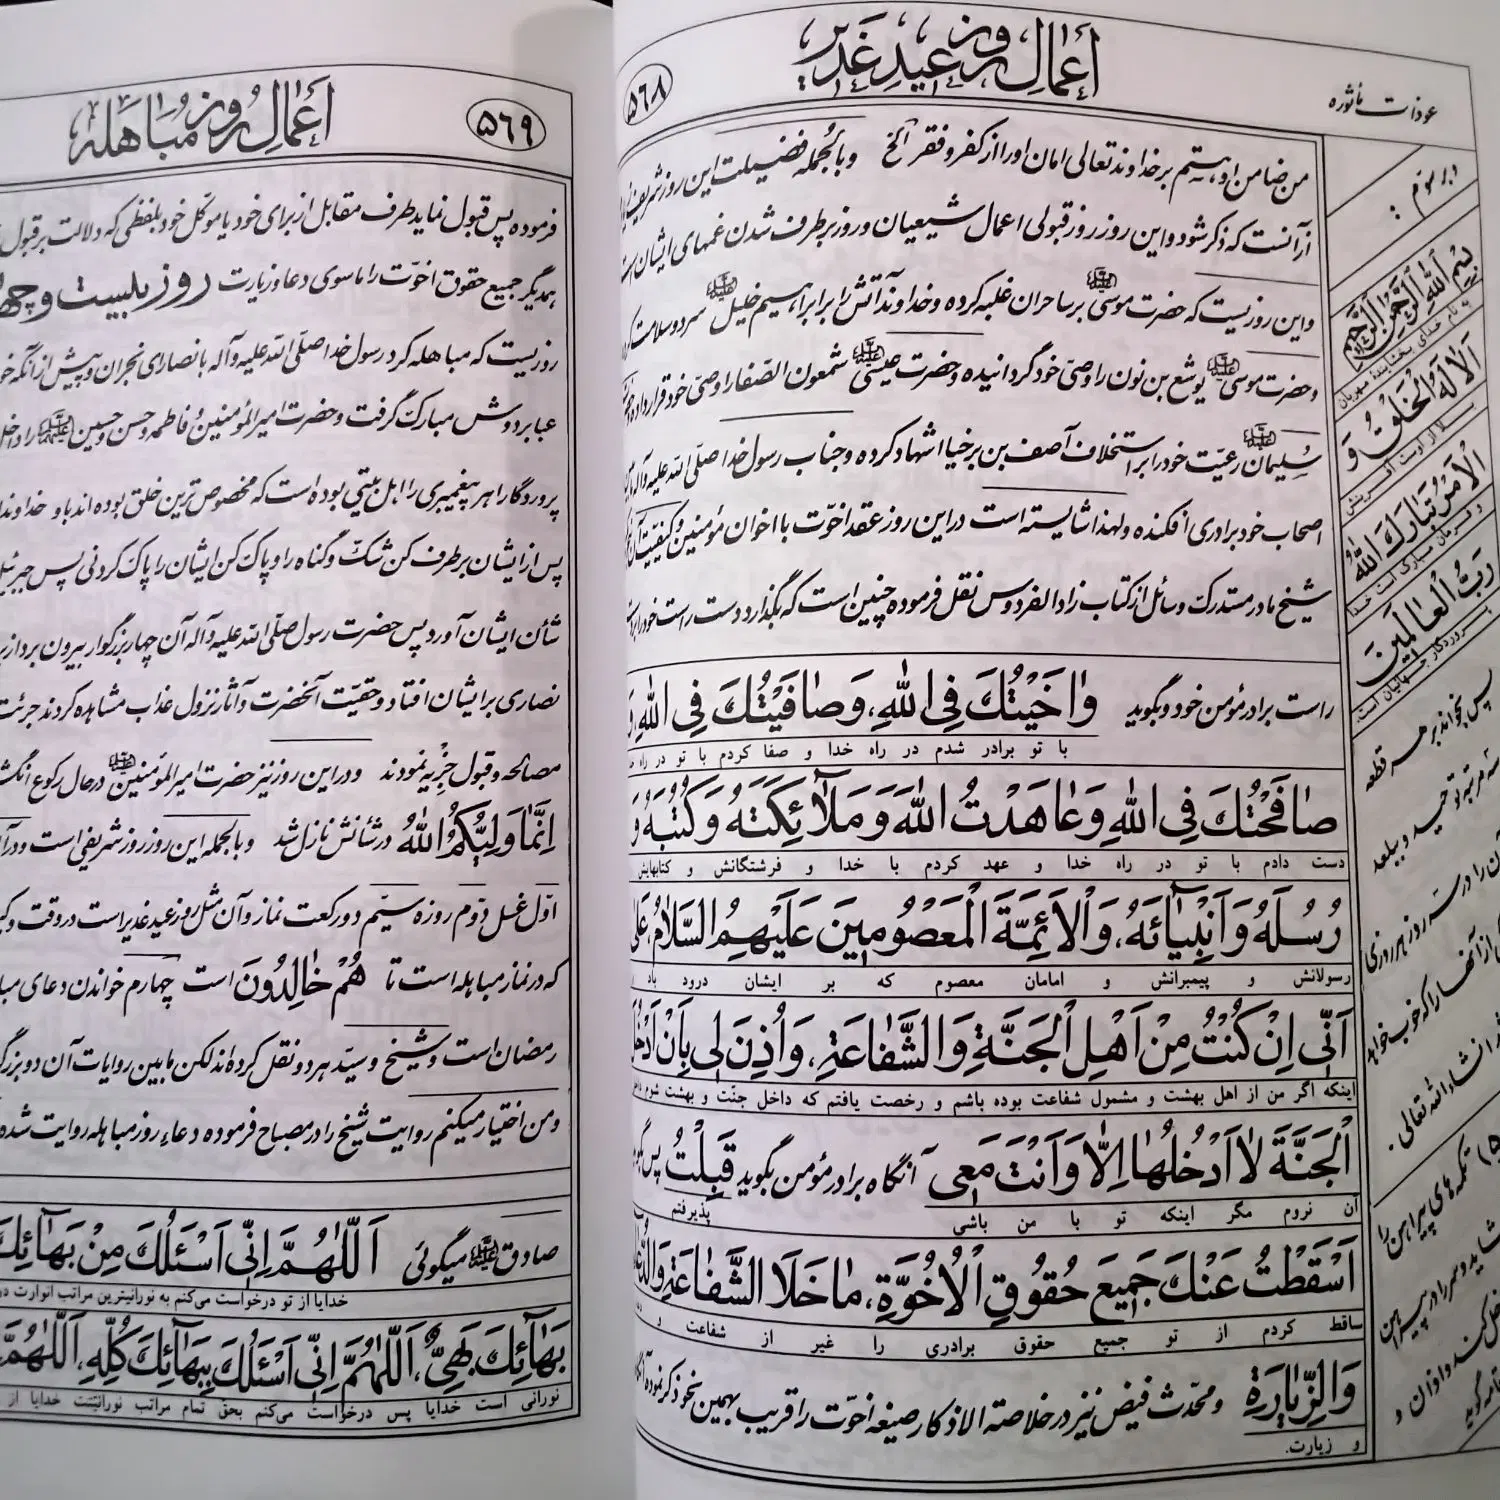 عوذات مأثوره
اَعمالِ روزِ عیدِ غَدیر
۵۶۸
من ضامن او هستم بر خداوند تعالی امان او را از کفر و فقر الخ وبالجمله فضیلت این روز شریف
از آنست که ذکر شود و این روز روز قبولی اعمال شیعیان و روز برطرف شدن غمهای ایشان
و این روزیست که حضرت موسی علیه‌السلام بر ساحران غلبه کرده و خداوند آتش را بر ابراهیم خلیل علیه‌السلام سرد و سلامت
و حضرت موسی علیه‌السلام یوشع بن نون را وصی خود گردانیده و حضرت عیسی علیه‌السلام شمعون الصفا را وصی خود قرار داده
سلیمان علیه‌السلام رعیت خود را بر استخلاف آصف بن برخیا اشهاد کرده و جناب رسول خدا صلی الله علیه و آله
اصحاب خود برادری افکنده و لهذا شایسته است در این روز عقد اخوّت با اخوان مؤمنین و کیفیت آن
شیخ ما در مستدرک وسائل از کتاب زاد الفردوس نقل فرموده چنین است که بگذارد دست راست خود را
راست برادر مؤمن خود و بگوید وٰاخَیْتُکَ فِی اللهِ، وَصٰافَیْتُکَ فِی اللهِ
با تو برادر شدم در راه خدا و صفا کردم با تو در راه
صٰافَحْتُکَ فِی اللهِ وَعٰاهَدْتُ اللهَ وَمَلآئِکَتَهُ وَکُتُبَهُ وَ
دست دادم با تو در راه خدا و عهد کردم با خدا و فرشتگانش و کتابهایش
رُسُلَهُ وَاَنْبِیٰآئَهُ، وَالْاَئِمَّةَ الْمَعْصُومِینَ عَلَیْهِمُ السَّلٰامُ، عَلیٰ
رسولانش و پیمبرانش و امامان معصوم که بر ایشان درود باد
اَنّی اِنْ کُنْتُ مِنْ اَهْلِ الْجَنَّةِ وَالشَّفٰاعَةِ، وَاُذِنَ لی بِاَنْ اَدْخُلَ
اینکه اگر من از اهل بهشت و مشمول شفاعت بوده باشم و رخصت یافتم که داخل جنّت و بهشت شوم
الْجَنَّةَ لٰا اَدْخُلُهٰا اِلّٰا وَاَنْتَ مَعی آنگاه برادر مؤمن بگوید قَبِلْتُ
آن نروم مگر اینکه تو با من باشی پذیرفتم
اَسْقَطْتُ عَنْکَ جَمیعَ حُقُوقِ الْاُخُوَّةِ، مٰا خَلَا الشَّفٰاعَةِ وَالدُّعٰاءِ
ساقط کردم از تو جمیع حقوق برادری را غیر از شفاعت و
وَالزِّیٰارَةِ و محدّث فیض نیز در خلاصة الاذکار صیغه اخوّت را قریب بهمین نحو ذکر نموده
و زیارت.
بسم الله الرحمن الرحیم
به نام خدای بخشاینده مهربان
اَلٰا لَهُ الْخَلْقُ وَ
الْاَمْرُ تَبٰارَکَ اللهُ
و فرمان مبارک است خدا
رَبُّ الْعٰالَمینَ
پروردگار جهانیان است
پس بخواند بر هر قطعه
انشاءالله تعالی .
تکمه‌های پیراهن را
۵۶۹
اَعمالِ روزِ مُباهله
فرموده پس قبول نماید طرف مقابل از برای خود یا موکل خود بلفظی که دلالت بر قبول
یکدیگر جمیع حقوق اخوّت را ماسوی دعا و زیارت روز بیست و
روزیست که مباهله کرد رسول خدا صلی الله علیه و آله با نصارای نجران و پیش از آنکه
عبا بر دوش مبارک گرفت و حضرت امیرالمؤمنین و فاطمه و حسن و حسین علیهم‌السلام را داخل
پروردگارا هر پیغمبری را اهل بیتی بوده است که مخصوص‌ترین خلق بوده‌اند باو خداوندا
پس از ایشان برطرف کن شکّ و گناه را و پاک کن ایشان را پاک کردنی پس جبرئیل
شأن ایشان آورد پس حضرت رسول صلی الله علیه و آله آن چهار بزرگوار بیرون برد
نصاری بر ایشان افتاد و حقیّت آنحضرت و آثار نزول عذاب مشاهده کردند جرئت
مصالحه و قبول جزیه نمودند و در این روز نیز حضرت امیرالمؤمنین علیه‌السلام در حال رکوع
اِنَّمٰا وَلِیُّکُمُ اللهُ در شأنش نازل شد وبالجمله این روز روز شریفی است و در آن
اوّل غسل دوّم روزه سیّم دو رکعت نماز و آن مثل روز عید غدیر است در وقت و
که در نماز مباهله است تا هُمْ خٰالِدُونَ است چهارم خواندن دعای
رمضان است و شیخ و سیّد هر دو نقل کرده‌اند لکن ما بین روایات آن دو
و من اختیار میکنم روایت شیخ را در مصباح فرموده دعاء روز مباهله روایت شده
صادق علیه‌السلام میگوئی اَللّٰهُمَّ اِنّی اَسْئَلُکَ مِنْ بَهٰآئِکَ
خدایا از تو درخواست می‌کنم به نورانیترین مراتب انوارت
بَهٰآئِکَ بَهِیٌّ، اَللّٰهُمَّ اِنّی اَسْئَلُکَ بِبَهٰآئِکَ کُلِّهِ، اَللّٰهُمَّ
نورانی است خدایا پس درخواست می‌کنم بحق تمام مراتب نورانیّتت خدایا از